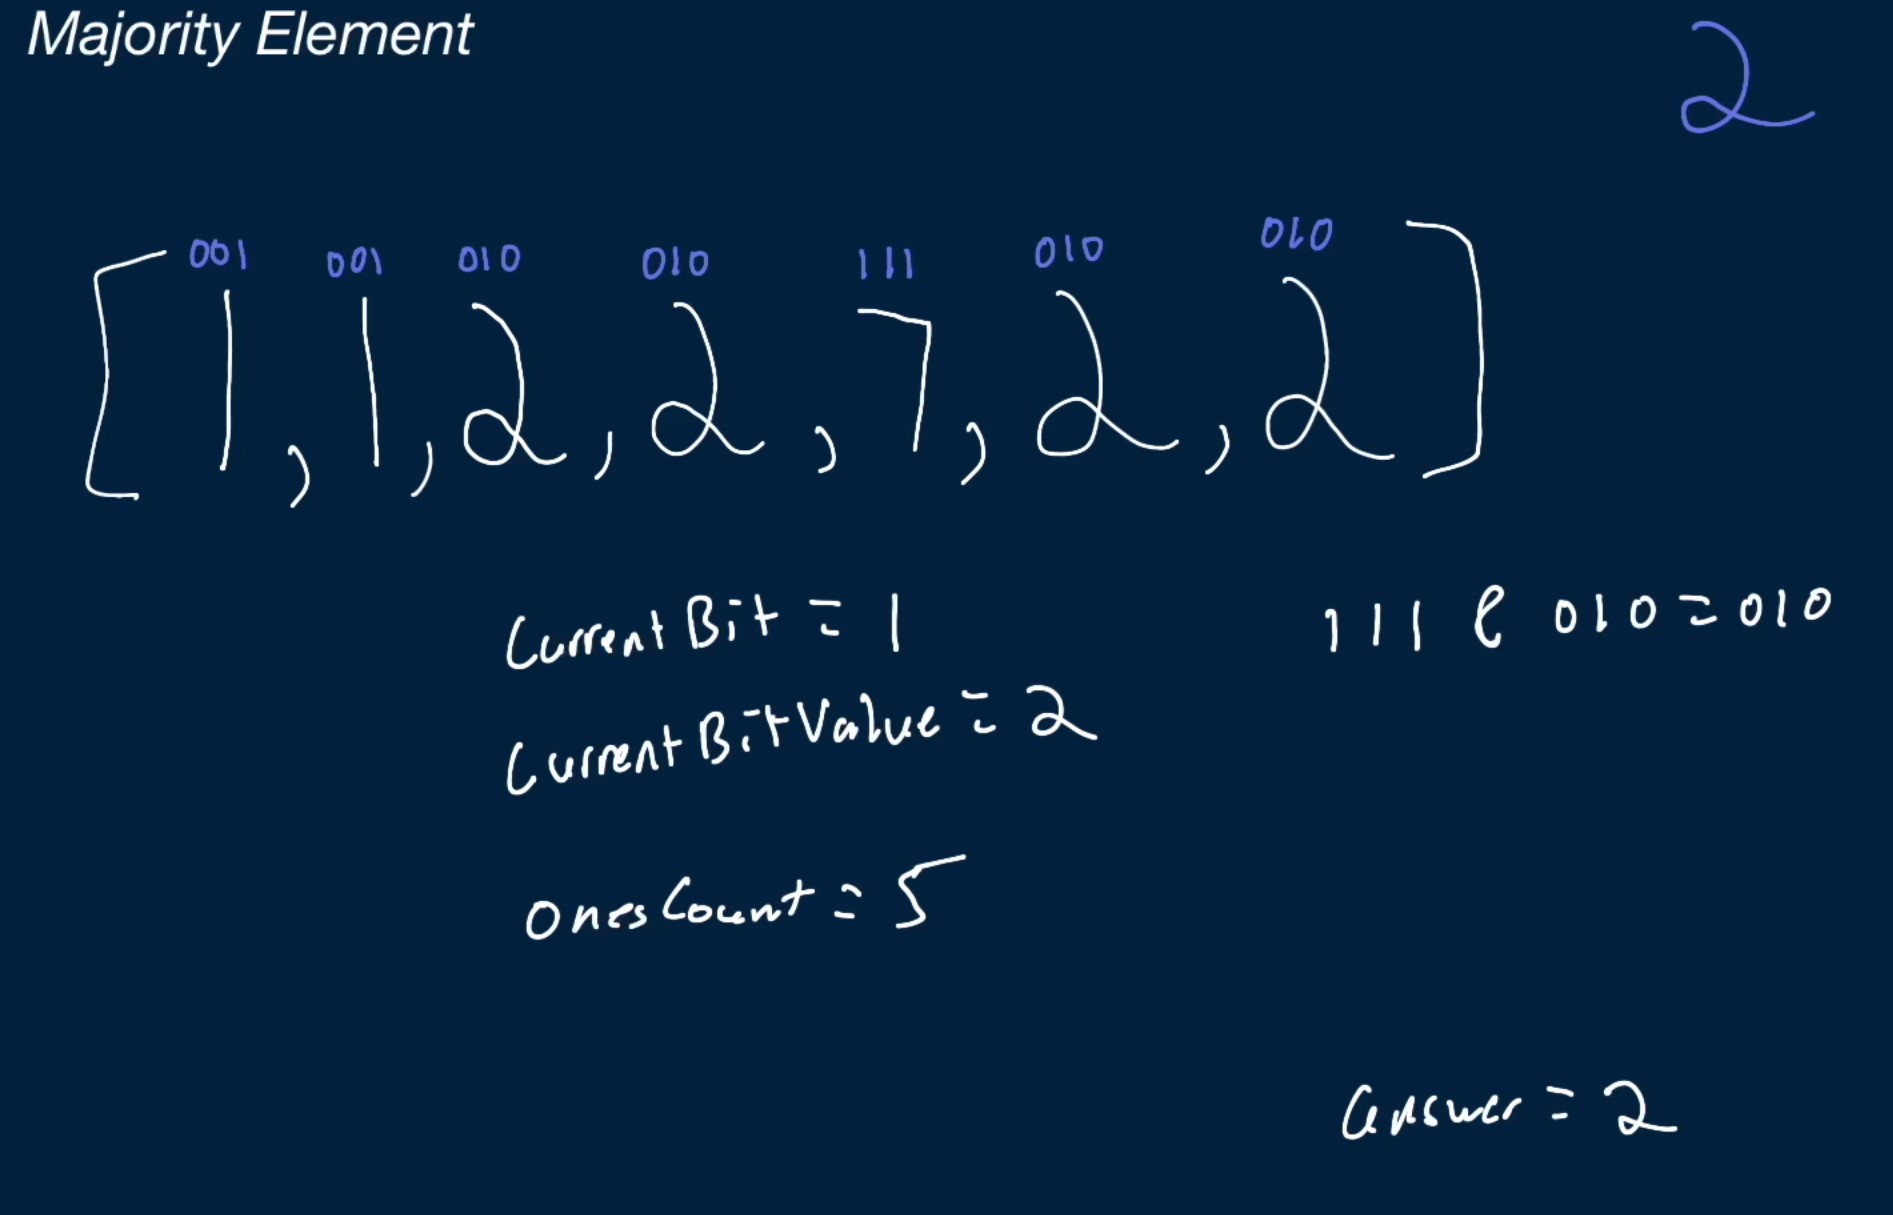 Majority Element
2
001 001 010 010 111 010 010
[1, 1, 2, 2, 7, 2, 2]
CurrentBit = 1
111 & 010 = 010
CurrentBitValue = 2
onesCount = 5
answer = 2